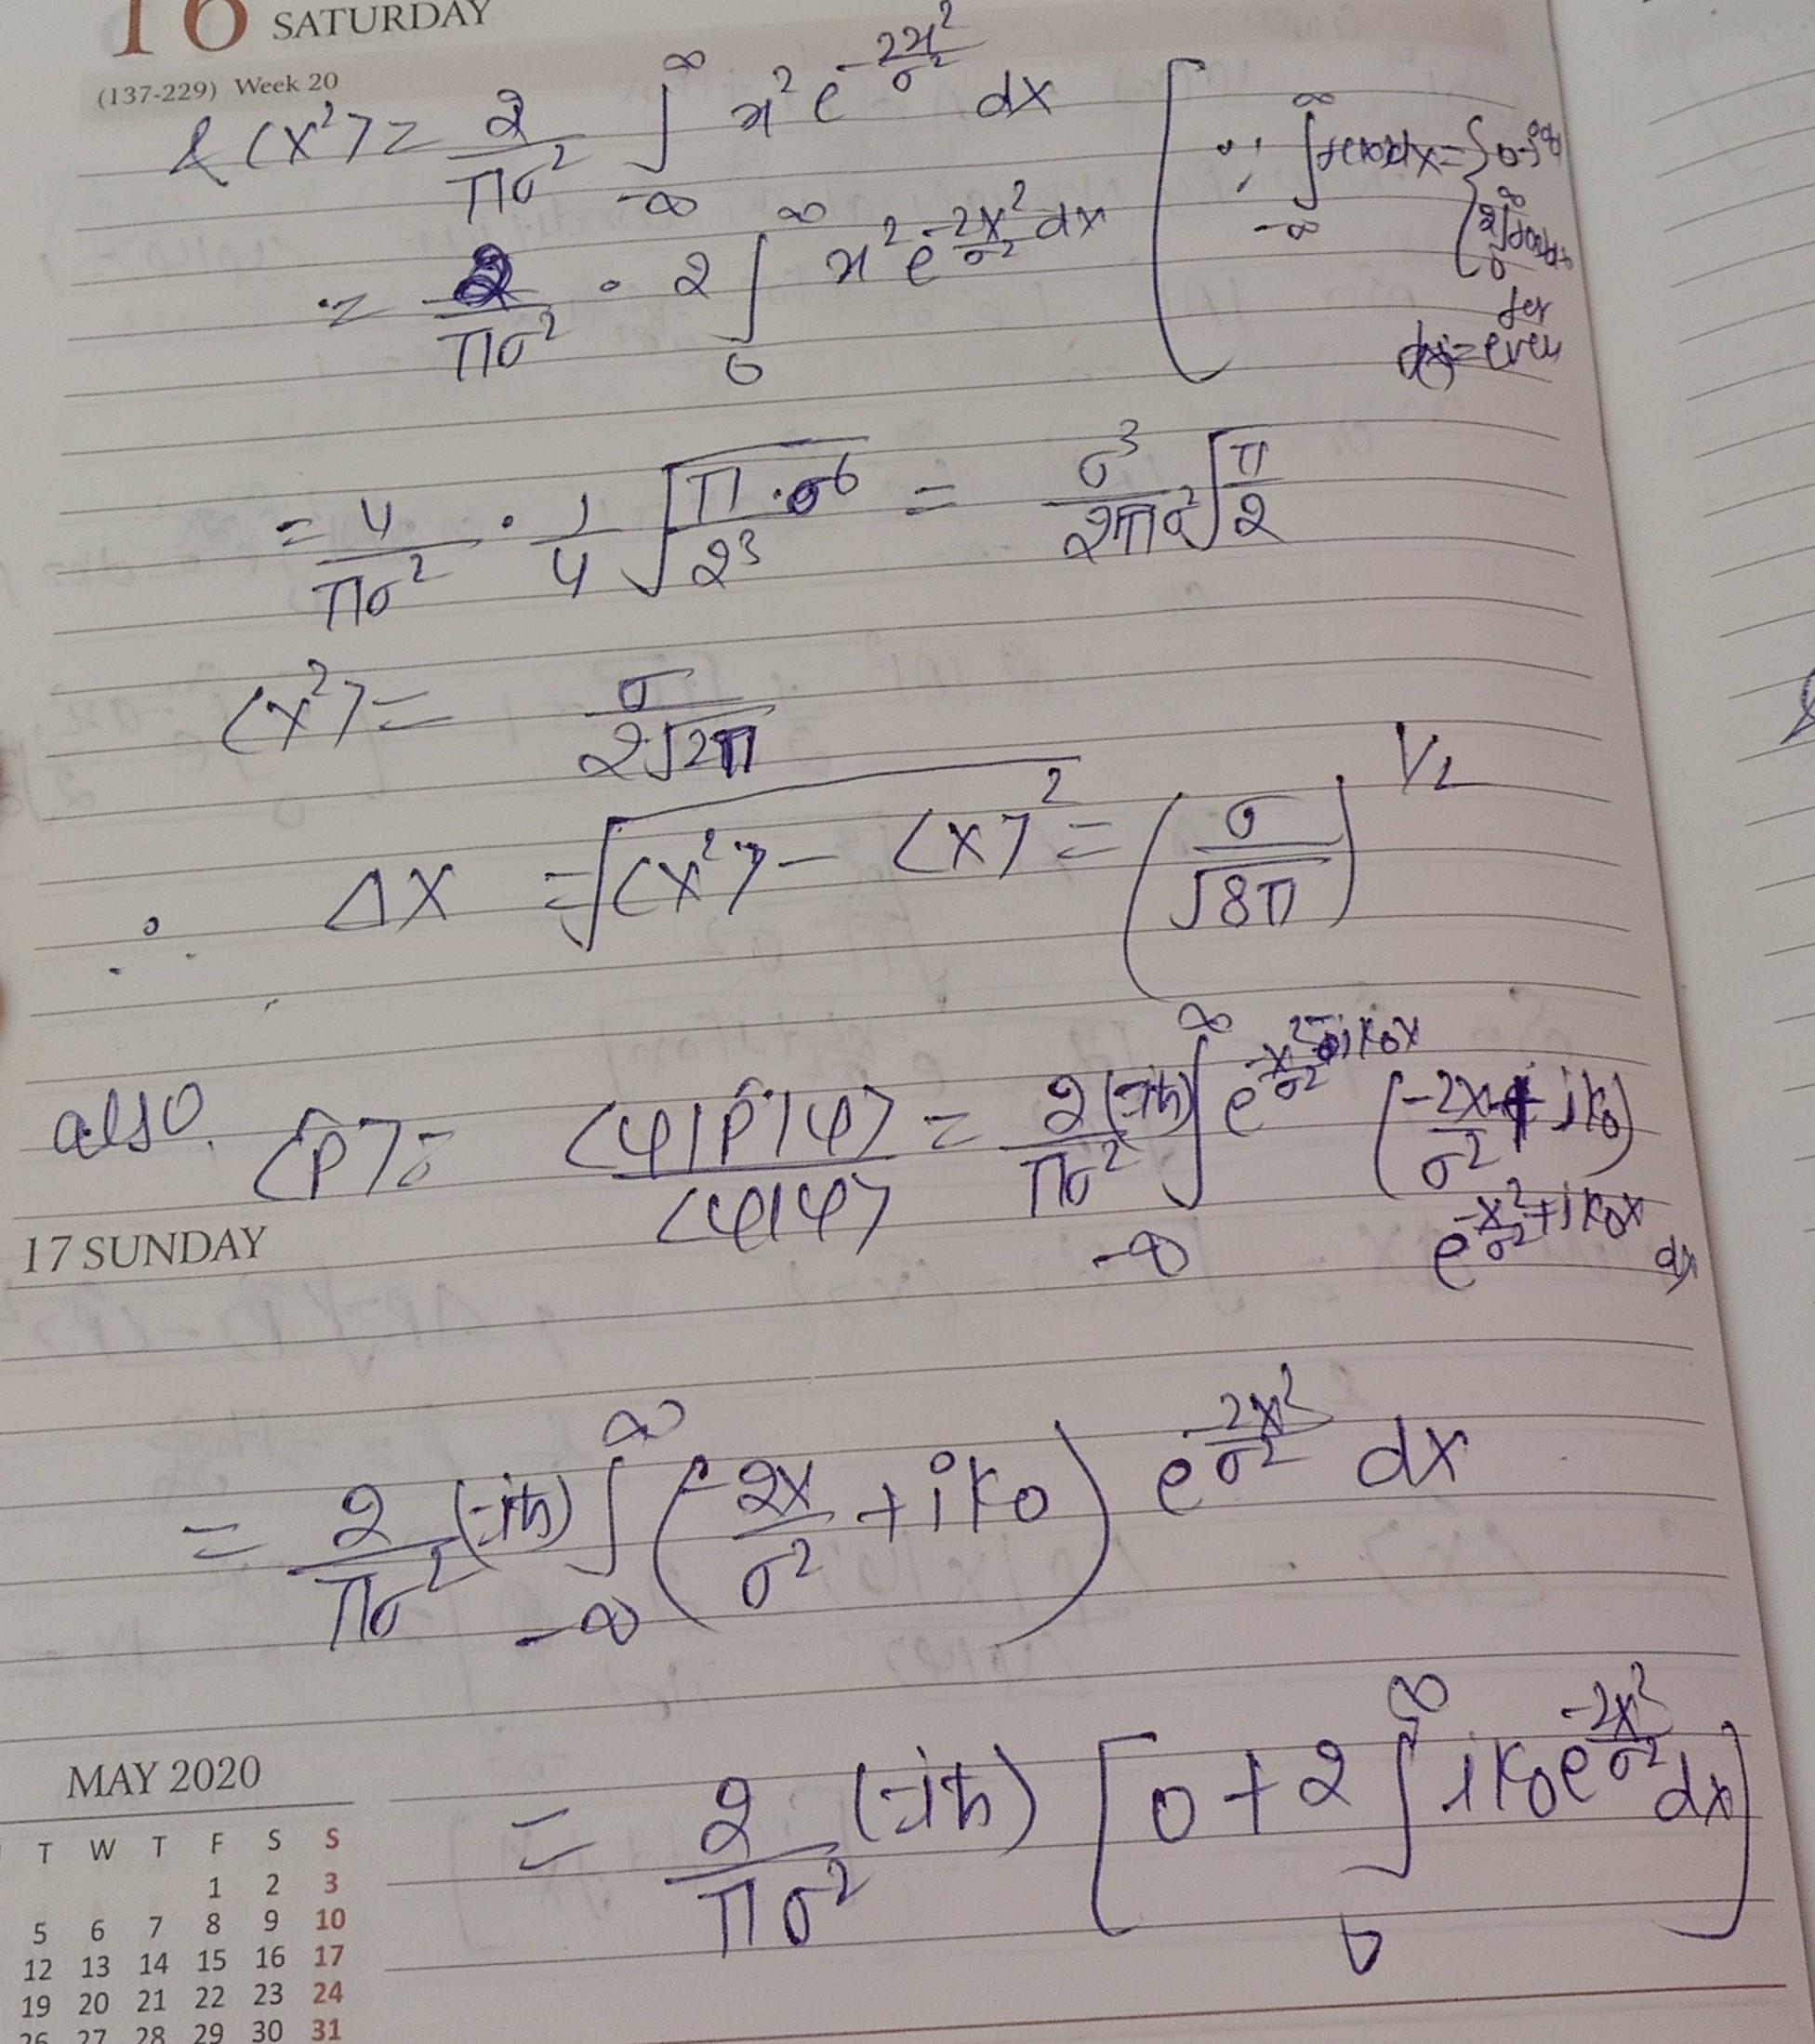 16 SATURDAY
(137-229) Week 20
& ⟨x²⟩ = 2/(πσ²) ∫_{-∞}^{∞} x² e^{-2x²/σ²} dx
= 2/(πσ²) · 2 ∫_0^∞ x² e^{-2x²/σ²} dx
for
even
= 4/(πσ²) · 1/4 √(π·σ⁶/2³) = σ³/(2πσ²) √(π/2)
⟨x²⟩ = σ/(2√(2π))
∴ Δx = √(⟨x²⟩ - ⟨x⟩²) = (σ/√(8π))^{1/2}
also, ⟨p̂⟩ = ⟨ψ|p̂|ψ⟩/⟨ψ|ψ⟩ = 2/(πσ²) (-iħ) ∫_{-∞}^{∞} e^{-x²/σ² - ik₀x} (-2x/σ² + ik₀)
e^{-x²/σ² + ik₀x} dx
17 SUNDAY
= 2/(πσ²) (-iħ) ∫_{-∞}^{∞} (-2x/σ² + ik₀) e^{-2x²/σ²} dx
= 2/(πσ²) (-iħ) [0 + 2 ∫_0^∞ ik₀ e^{-2x²/σ²} dx]
MAY 2020
T W T F S S
1 2 3
5 6 7 8 9 10
12 13 14 15 16 17
19 20 21 22 23 24
26 27 28 29 30 31